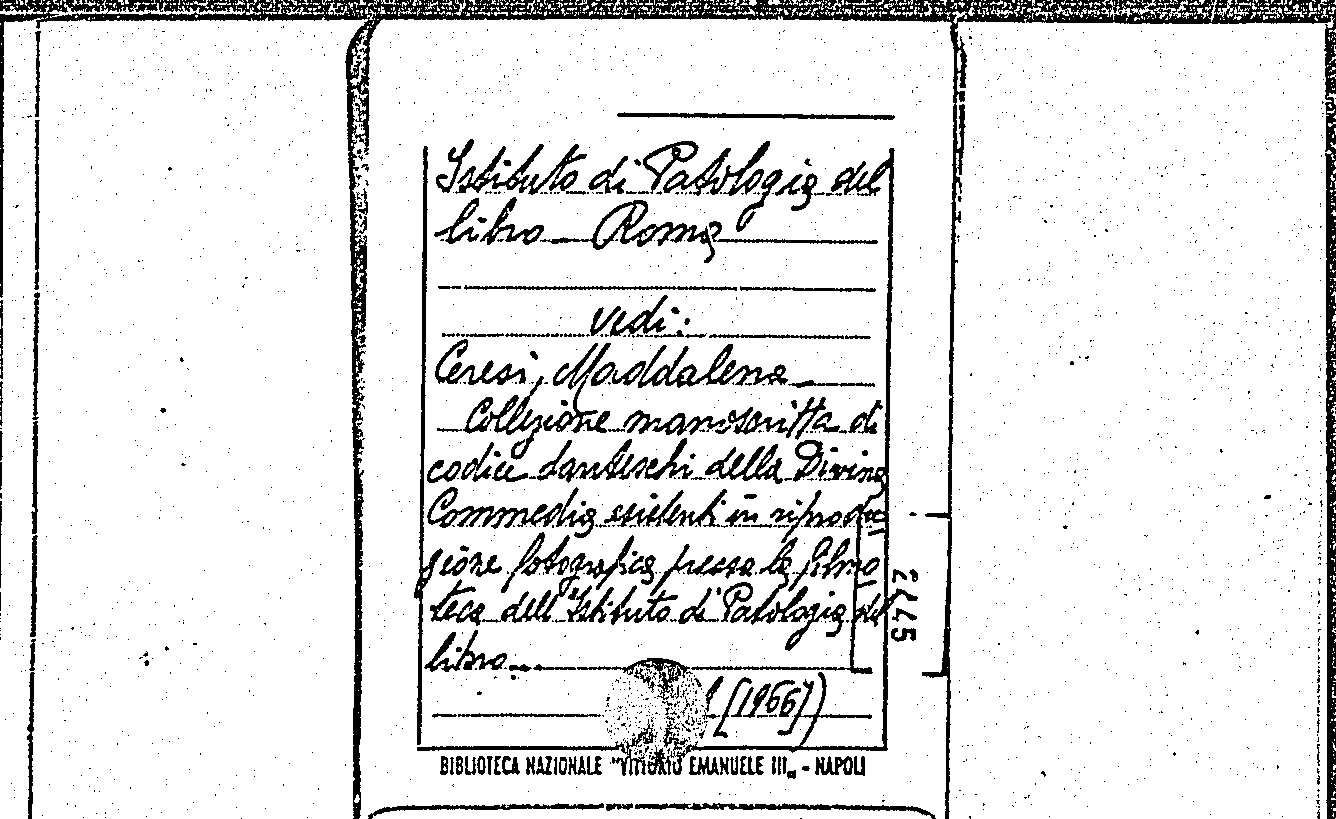 Istituto di Patologia del
libro - Roma
vedi:
Ceresi, Maddalena -
Collezione manoscritta di
codici danteschi della Divina
Commedia esistenti in riprodu=
zione fotografica presso la filmo
teca dell'Istituto di Patologia del
libro...
[1966])
BIBLIOTECA NAZIONALE "VITTORIO EMANUELE III„ - NAPOLI